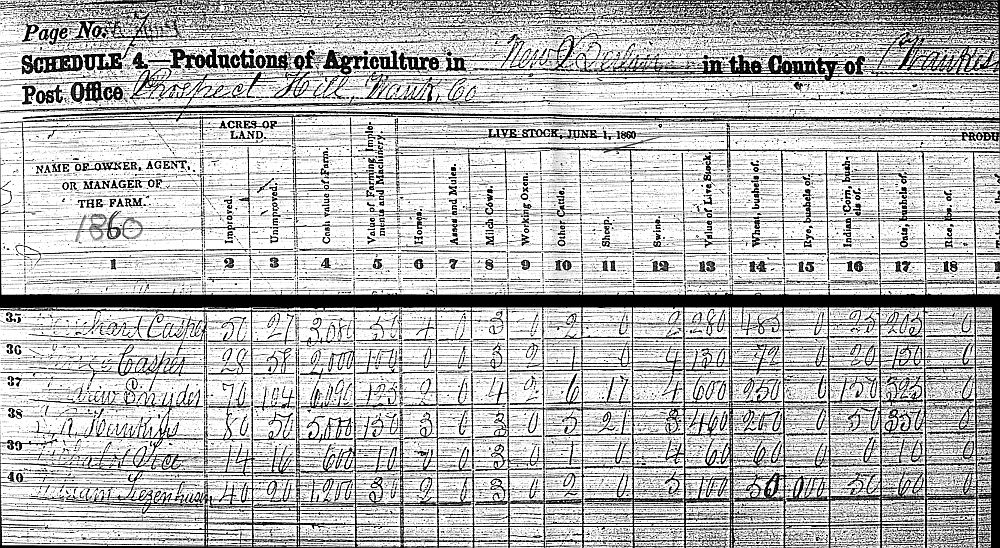 Page No.
SCHEDULE 4.—Productions of Agriculture in New Berlin in the County of Waukes
Post Office Prospect Hill, Wauk. Co
NAME OF OWNER, AGENT, OR MANAGER OF THE FARM.
1860
ACRES OF LAND.
Improved.
Unimproved.
Cash value of Farm.
Value of Farming Implements and Machinery.
LIVE STOCK, JUNE 1, 1860
Horses.
Asses and Mules.
Milch Cows.
Working Oxen.
Other Cattle.
Sheep.
Swine.
Value of Live Stock.
PRODU
Wheat, bushels of.
Rye, bushels of.
Indian Corn, bushels of.
Oats, bushels of.
Rice, lbs. of.
1 2 3 4 5 6 7 8 9 10 11 12 13 14 15 16 17 18 1
35 Casper 50 27 3,080 50 4 0 3 0 2 0 2 280 485 0 25 205 0
36 Casper 28 58 2,000 100 0 0 3 2 1 0 4 150 72 0 20 150 0
37 Snyder 70 104 125 2 0 4 2 6 17 4 600 250 0 150 525 0
38 80 50 5,000 150 3 0 3 0 5 21 3 460 200 0 50 350 0
39 14 16 600 10 0 0 3 0 1 0 4 60 60 0 0 10 0
40 40 20 1,200 30 2 0 3 0 2 0 5 100 50 000 50 60 0